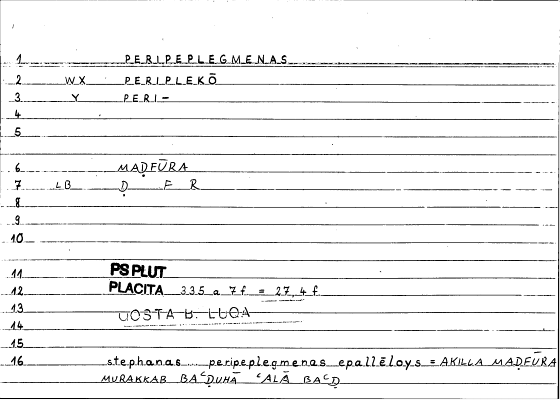 1 PERIPEPLEGMENAS
2 WX PERIPLEKŌ
3 Y PERI-
4
5
6 MAḌFŪRA
7 LB Ḍ F R
8
9
10
11 PS PLUT
12 PLACITA 335 a 7f = 27,4f
13 QOSTA B. LUQA
14
15
16 stephanas ... peripeplegmenas epallēloys = AKILLA MAḌFŪRA
MURAKKAB BAʿḌUHĀ ʿALĀ BAʿḌ